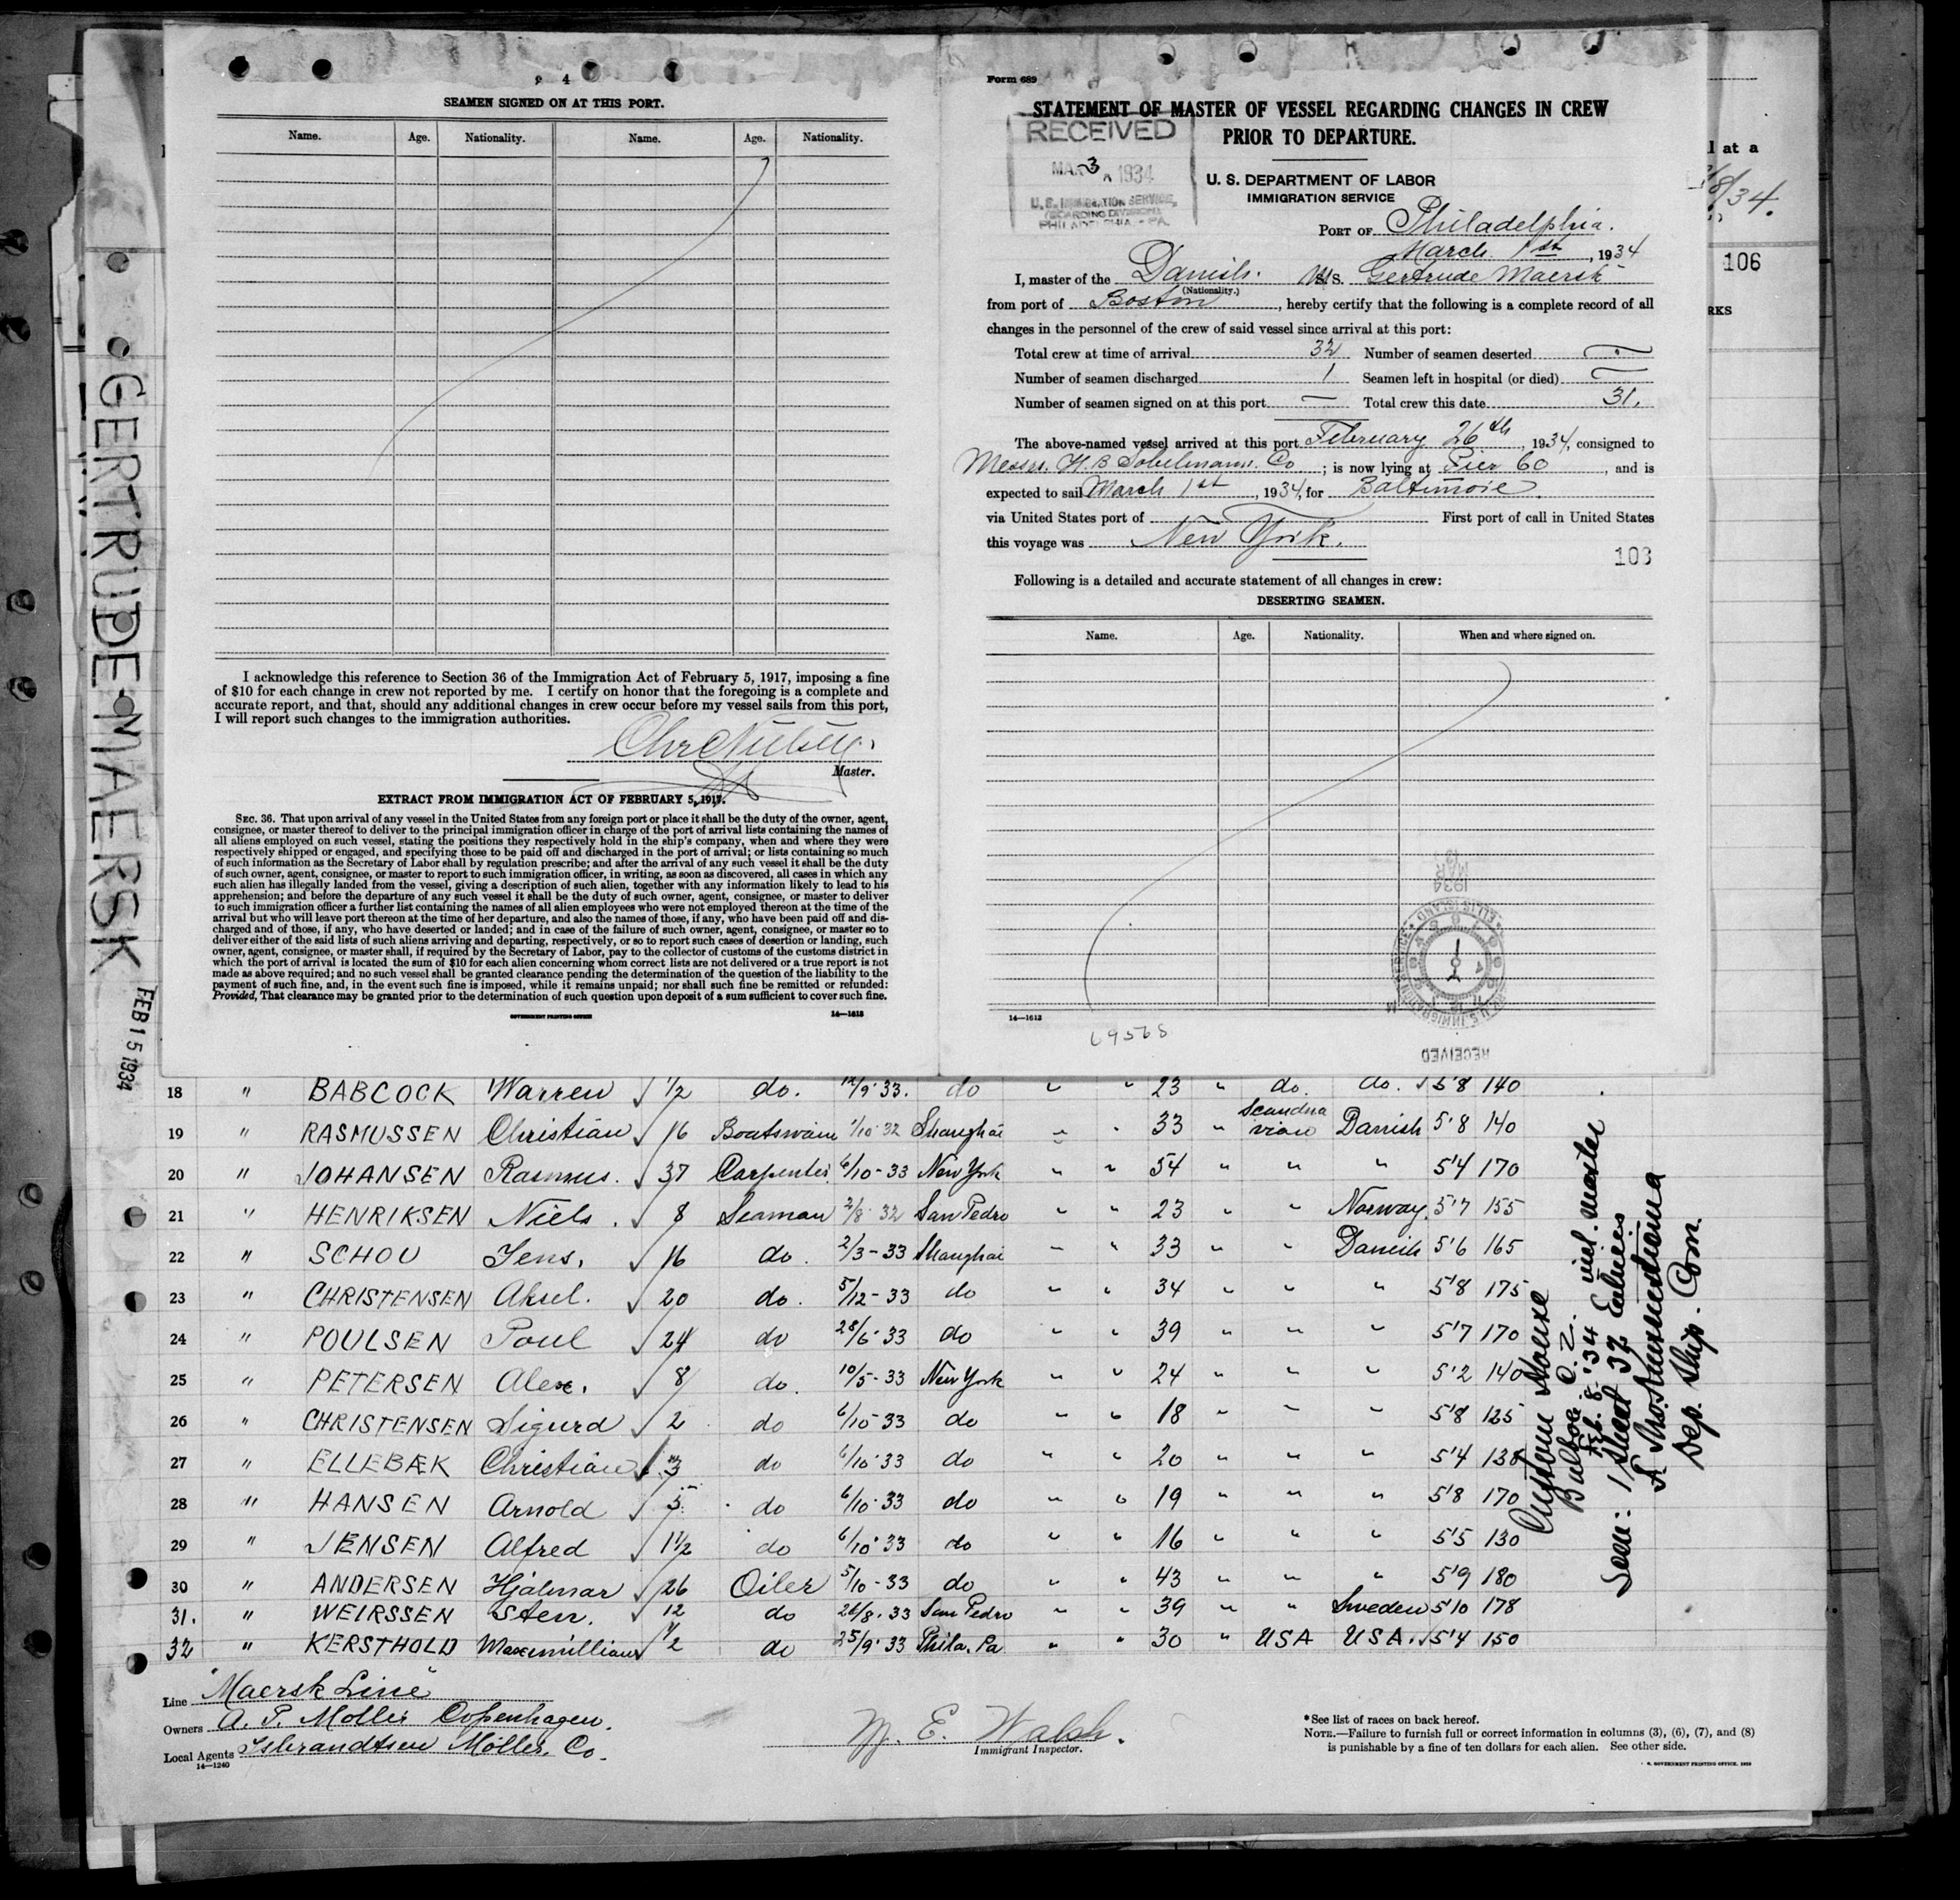 4
SEAMEN SIGNED ON AT THIS PORT.
Name. Age. Nationality. Name. Age. Nationality.
I acknowledge this reference to Section 36 of the Immigration Act of February 5, 1917, imposing a fine
of $10 for each change in crew not reported by me. I certify on honor that the foregoing is a complete and
accurate report, and that, should any additional changes in crew occur before my vessel sails from this port,
I will report such changes to the immigration authorities.
Master.
EXTRACT FROM IMMIGRATION ACT OF FEBRUARY 5, 1917.
SEC. 36. That upon arrival of any vessel in the United States from any foreign port or place it shall be the duty of the owner, agent,
consignee, or master thereof to deliver to the principal immigration officer in charge of the port of arrival lists containing the names of
all aliens employed on such vessel, stating the positions they respectively hold in the ship's company, when and where they were
respectively shipped or engaged, and specifying those to be paid off and discharged in the port of arrival; or lists containing so much
of such information as the Secretary of Labor shall by regulation prescribe; and after the arrival of any such vessel it shall be the duty
of such owner, agent, consignee, or master to report to such immigration officer, in writing, as soon as discovered, all cases in which any
such alien has illegally landed from the vessel, giving a description of such alien, together with any information likely to lead to his
apprehension; and before the departure of any such vessel it shall be the duty of such owner, agent, consignee, or master to deliver
to such immigration officer a further list containing the names of all alien employees who were not employed thereon at the time of the
arrival but who will leave port thereon at the time of her departure, and also the names of those, if any, who have been paid off and dis-
charged and of those, if any, who have deserted or landed; and in case of the failure of such owner, agent, consignee, or master so to
deliver either of the said lists of such aliens arriving and departing, respectively, or so to report such cases of desertion or landing, such
owner, agent, consignee, or master shall, if required by the Secretary of Labor, pay to the collector of customs of the customs district in
which the port of arrival is located the sum of $10 for each alien concerning whom correct lists are not delivered or a true report is not
made as above required; and no such vessel shall be granted clearance pending the determination of the question of the liability to the
payment of such fine, and, in the event such fine is imposed, while it remains unpaid; nor shall such fine be remitted or refunded:
Provided, That clearance may be granted prior to the determination of such question upon deposit of a sum sufficient to cover such fine.
GOVERNMENT PRINTING OFFICE 14—1613
Form 689
STATEMENT OF MASTER OF VESSEL REGARDING CHANGES IN CREW
PRIOR TO DEPARTURE.
RECEIVED
MAR 3 1934
U. S. IMMIGRATION SERVICE,
(BOARDING DIVISION)
PHILADELPHIA - PA.
U. S. DEPARTMENT OF LABOR
IMMIGRATION SERVICE
PORT OF Philadelphia.
March 1st, 1934
I, master of the Danish. M/S. Gertrude Maersk
(Nationality.)
from port of Boston, hereby certify that the following is a complete record of all
changes in the personnel of the crew of said vessel since arrival at this port:
Total crew at time of arrival 32 Number of seamen deserted
Number of seamen discharged 1 Seamen left in hospital (or died)
Number of seamen signed on at this port — Total crew this date 31.
The above-named vessel arrived at this port February 26th, 1934, consigned to
Messrs. H. B Sobelmann. Co; is now lying at Pier 60, and is
expected to sail March 1st, 1934, for Baltimore.
via United States port of First port of call in United States
this voyage was New York.
103
Following is a detailed and accurate statement of all changes in crew:
DESERTING SEAMEN.
Name. Age. Nationality. When and where signed on.
MAR
1934
ELLIS ISLAND
RECEIVED
14—1613
69568
l at a
8/34.
106
RKS
GERTRUDE MAERSK
FEB 15 1934
18 " BABCOCK Warren √ 1/2 do. 12/9-33. do " " 23 " do. do. √ 5'8 140
19 " RASMUSSEN Christian √ 16 Boatswain 1/10-32 Shanghai " " 33 " Scandinavian Danish 5'8 140
20 " JOHANSEN Rasmus. √ 37 Carpenter 6/10-33 New York " " 54 " " " 5'4 170
21 " HENRIKSEN Niels. √ 8 Seaman 2/8-32 San Pedro " " 23 " " Norway. 5'7 155
22 " SCHOU Jens. √ 16 do. 2/3-33 Shanghai " " 33 " " Danish 5'6 165
23 " CHRISTENSEN Aksel. √ 20 do. 5/12-33 do " " 34 " " " 5'8 175
24 " POULSEN Poul √ 24 do 28/6-33 do " " 39 " " " 5'7 170
25 " PETERSEN Alex. √ 8 do. 10/5-33 New York " " 24 " " " 5'2 140
26 " CHRISTENSEN Sigurd √ 2 do 6/10-33 do " " 18 " " " 5'8 125
27 " ELLEBÆK Christian √ 3 do 6/10-33 do " " 20 " " " 5'4 138
28 " HANSEN Arnold √ 5 do 6/10-33 do " " 19 " " " 5'8 170
29 " JENSEN Alfred √ 1 1/2 do 6/10-33 do " " 16 " " " 5'5 130
30 " ANDERSEN Hjalmar √ 26 Oiler 5/10-33 do " " 43 " " " 5'9 180
31. " WEIRSSEN Sten. √ 12 do 26/8-33 San Pedro " " 39 " " Sweden 5'10 178
32 " KERSTHOLD Maximillian √ 1/2 do 25/9-33 Phila. Pa " " 30 " USA USA. √ 5'4 150
Custom House
Balboa C. Z.
Feb. 8. '34
Seen: 1 Sheet 32 Entries incl. Master
Dep. Ship. Com.
Line "Maersk Line"
Owners A. P. Moller Copenhagen.
Local Agents Isbrandtsen Moller. Co.
14—1240
M. E. Walsh.
Immigrant Inspector.
*See list of races on back hereof.
NOTE.—Failure to furnish full or correct information in columns (3), (6), (7), and (8)
is punishable by a fine of ten dollars for each alien. See other side.